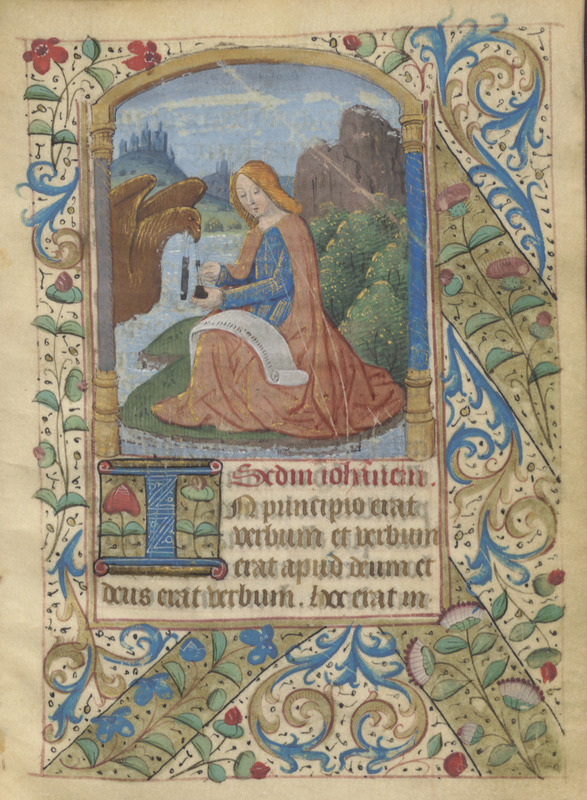 Sedm̄ ioħānem.
IN principio erat
verbum et verbum
erat apud deum et
deus erat verbum. hoc erat in